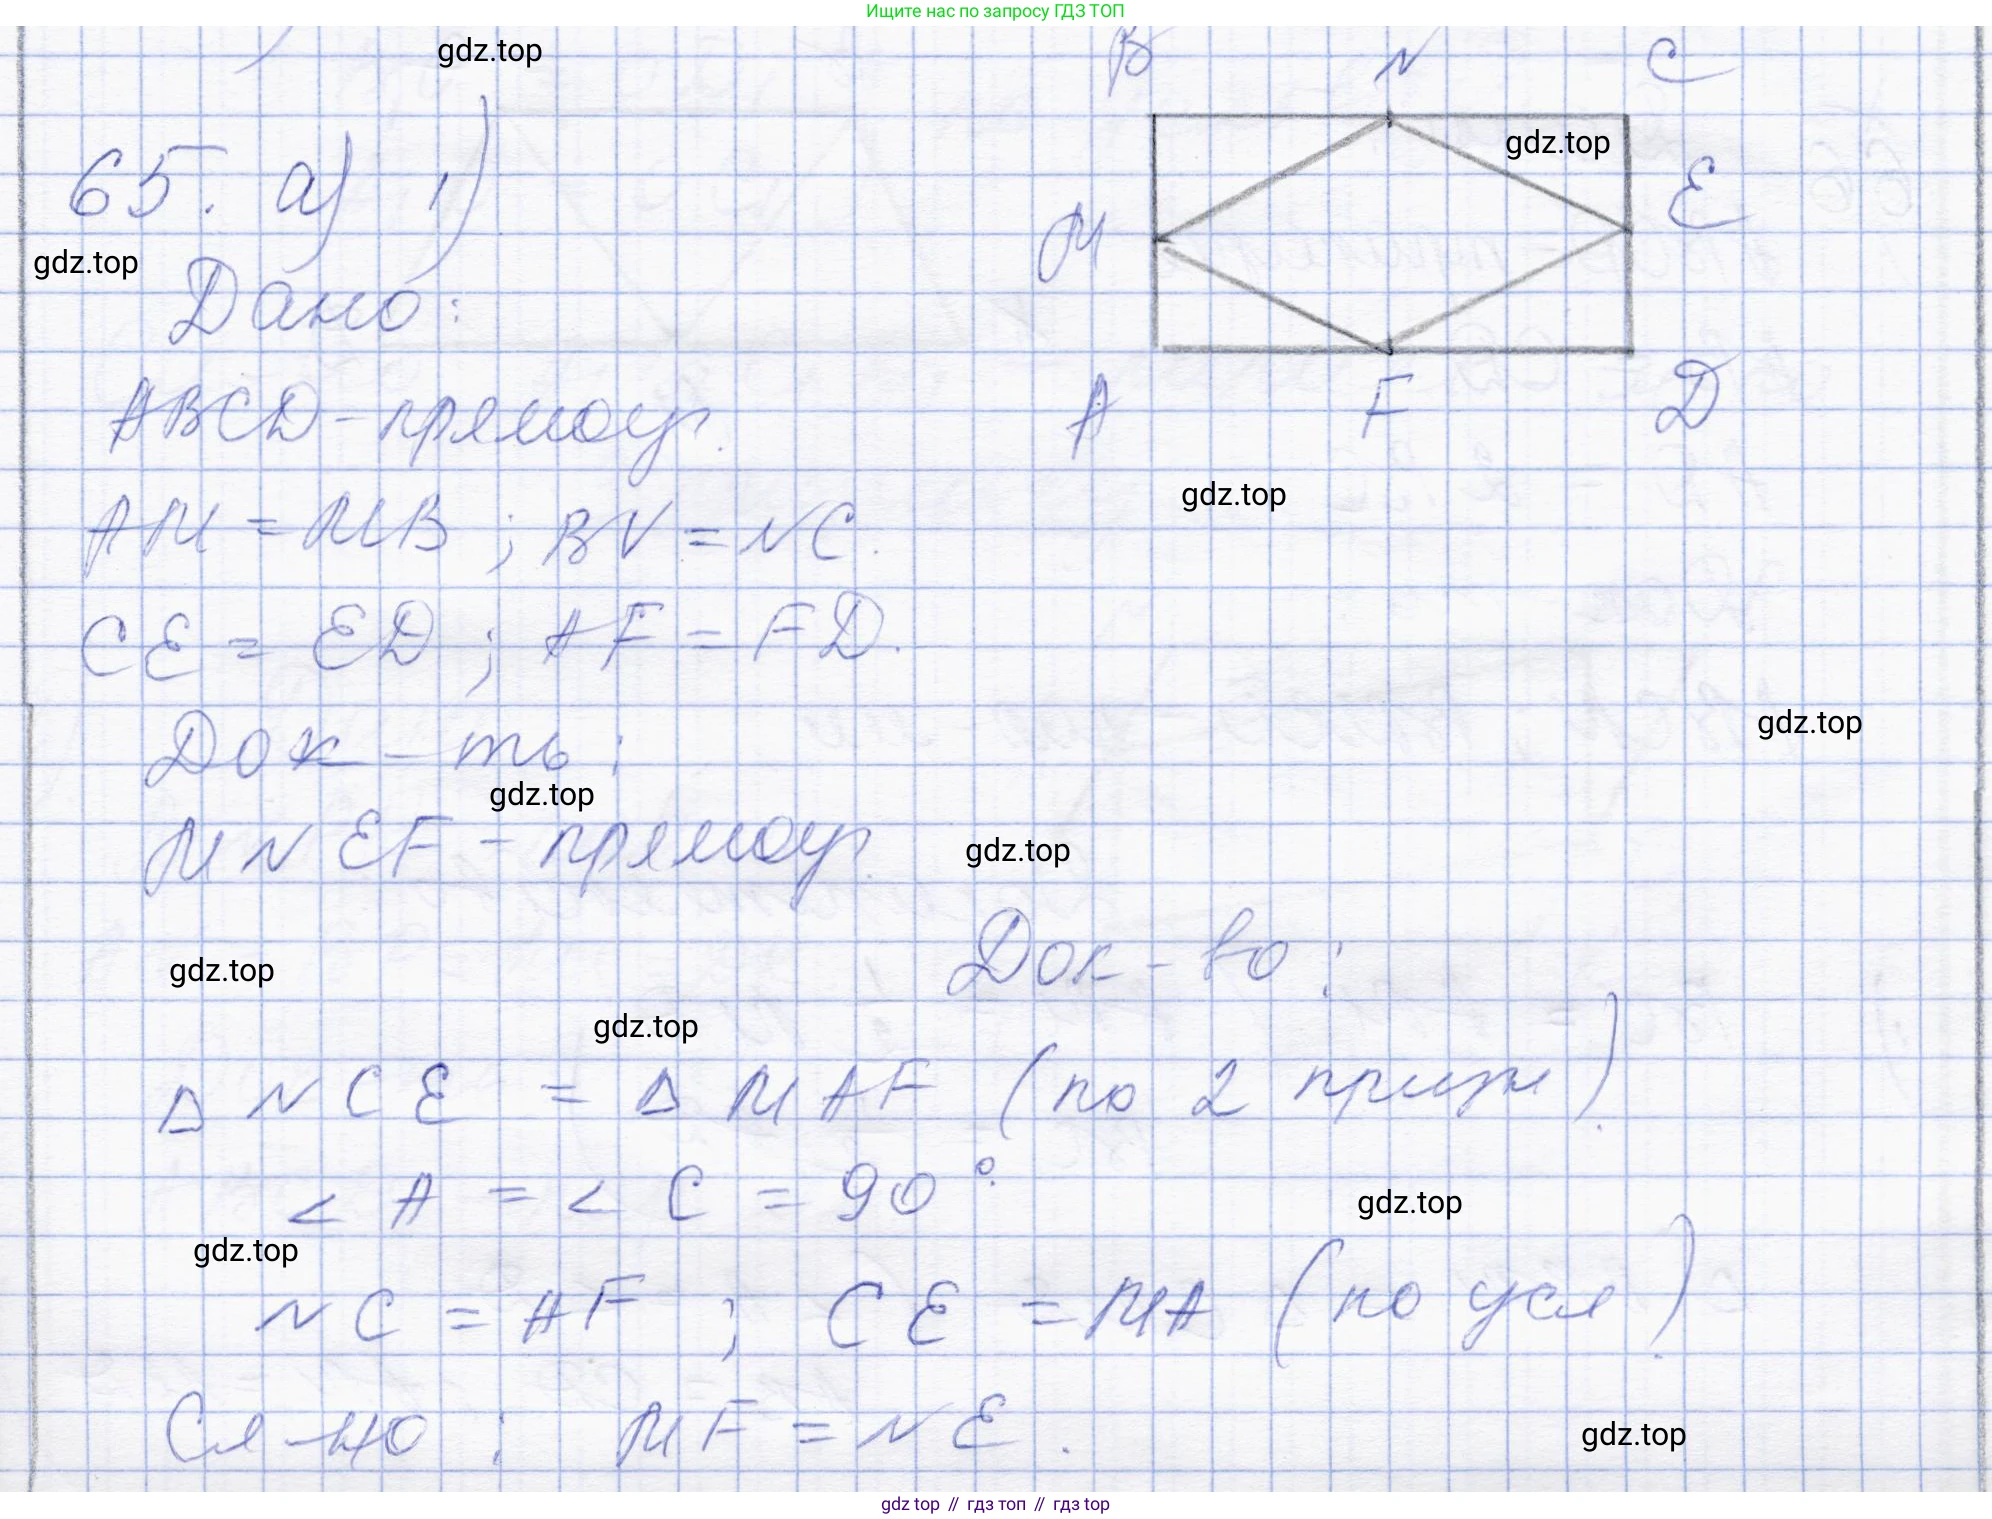 Ищите нас по запросу ГДЗ ТОП
gdz.top
B N C
65. а) 1)
gdz.top
M E
gdz.top
Дано:
ABCD - прямоуг.
A F D
gdz.top
AM = MB ; BN = NC.
CE = ED ; AF = FD.
gdz.top
Док-ть:
gdz.top
MNEF - прямоуг.
gdz.top
Док-во:
gdz.top
gdz.top
Δ NCE = Δ MAF (по 2 призн).
< A = < C = 90°.
gdz.top
gdz.top
NC = AF ; CE = MA (по усл).
Сл-но: MF = NE.
gdz.top
gdz top // гдз топ // гдз top